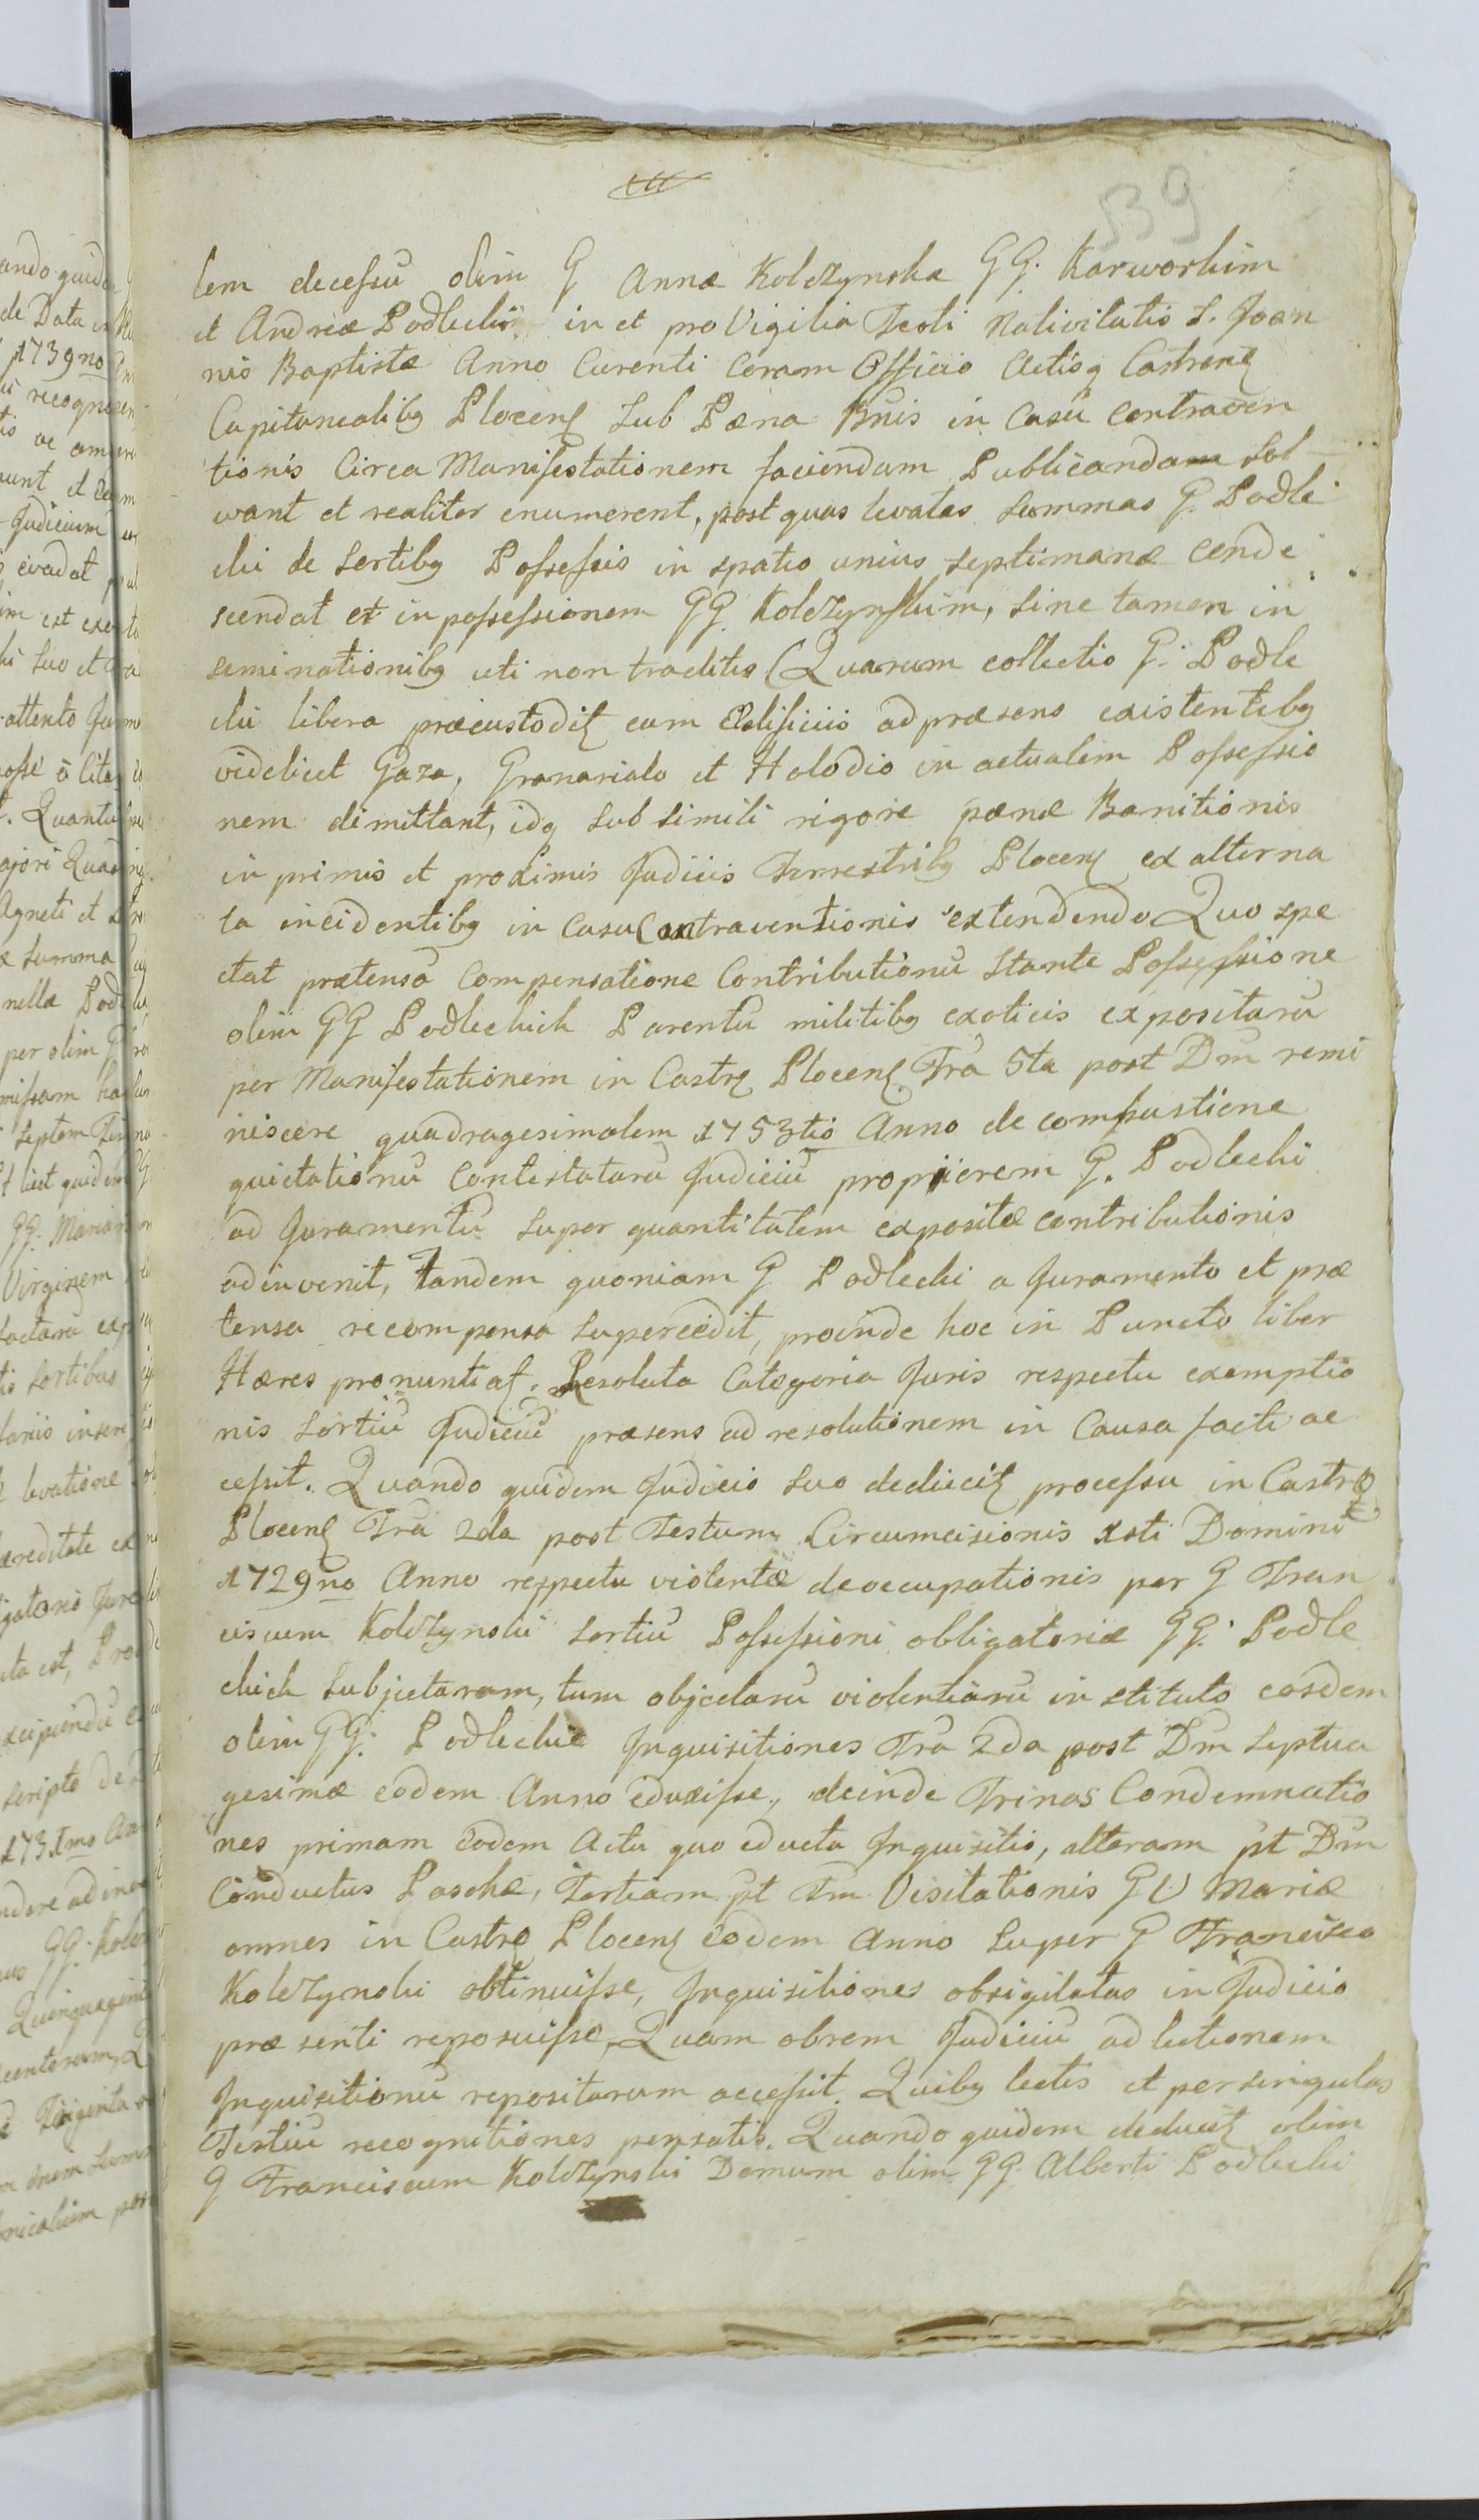 539
lem decessu olim G Annæ Kolczynska GG. Karworkim
et Andreæ Podlecki in et pro Vigilia Festi Nativitatis S. Joan
nis Baptistæ Anno Curenti Coram Officio Actisq Castrenȝ
Capitanealibq Plocenȝ Sub Pæna Bnis in Casu Contraven
tionis Circa Manifestationem faciendam Publicandam Sol
vant et realiter enumerent, post quas levatas Summas G. Podle
cki de Sortibq Possessis in spatio unius septimanæ conde
scendat et in possessionem GG. Kolczynskim, Sine tamen in
seminationibq uti non traditis (Quarum collectio G. Podle
cki libera præcustoditȝ cum Ædificiis ad præsens existentibq
videlicet Gaza, Granariolo et Holodio in actualem Possessio
nem dimittant, idq Sub Simili rigore pænæ Banitionis
in primis et proximis Judiciis Terrestribq Plocenȝ ex alterna
ta incidentibq in Casu Contraventionis extendendo Quo spe
ctat prætensâ Compensatione Contributionū Stante Possessione
olim GG Podleckich Parentū militibq exoticis expositarū
per Manifestationem in Castrȝ Plocenȝ Fra 5ta post Dm remi
niscere quadragesimalem 1753tio Anno de combustione
quietationū Contestatarū Judiciū propriorem G. Podlecki
ad Juramentū Super quantitatem expositæ contributionis
adinvenit, tandem quoniam G Podlecki a Juramento et præ
tensa recompensa Supercedit, proinde hoc in Puncto liber
Hæres pronuntiatȝ. Resoluta Categoria Juris respectu exemptio
nis Sortiū Judiciū præsens ad resolutionem in Causa facti ac
cessit. Quando quidem Judicio Suo deduciȝ processu in Castrȝ
Plocenȝ Fra 2da post Festum Circumcisionis Xsti Domini
1729no Anno respectu violentæ deoccupationis per G Fran
ciscum Kolczynski Sortiū Possessioni obligatoriæ GG. Podle
ckich Subjectarum, tum objectarū violentiarū instituto eosdem
olim GG. Podleckie Inquisitiones Fra 2da post Dm Septua
gesimæ eodem Anno eduxisse, deinde Trinas Condemnatio
nes primam Eodem Actu quo educta Inquisitio, alteram pt Dm
Conductus Paschæ, Tertiam pt Fm Visitationis GV Mariæ
omnes in Castrȝ Plocenȝ Eodem Anno Super G Francisco
Kolczynski obtinuisse, Inquisitiones obsigilatas in Judicio
præsenti reposuisse, Quam obrem Judiciū ad lectionem
Inquisitionū repositarum accessit. Quibq lectis et per singulas
Testiū recognitiones pensatis. Quando quidem deduciȝ olim
G Franciscum Kolczynski Domum olim GG. Alberti Podlecki